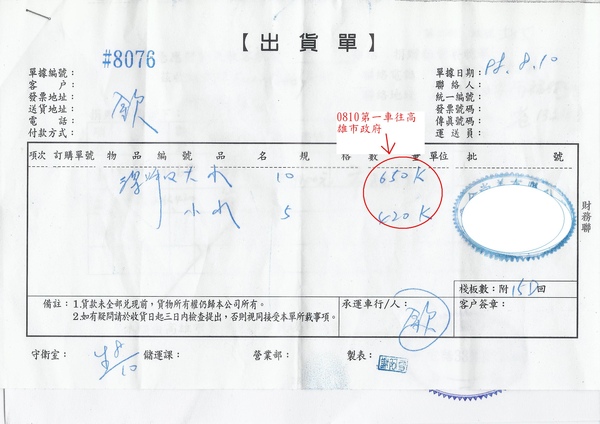 【出貨單】
#8076
單據編號：
單據日期：98.8.10
客戶：
聯絡人：
發票地址：
統一編號：
送貨地址：
發票號碼：
電話：
傳真號碼：
付款方式：
運送員：
0810第一車往高
雄市政府
項次 訂購單號 物品編號 品名 規格 數量 單位 批號
大 10 650K
小 5 420K
財務聯
棧板數：附15D回
備註：1.貨款未全部兌現前，貨物所有權仍歸本公司所有。
2.如有疑問請於收貨日起三日內檢查提出，否則視同接受本單所載事項。
承運車行/人：
客戶簽章：
守衛室： 8/10 儲運課： 營業部： 製表：